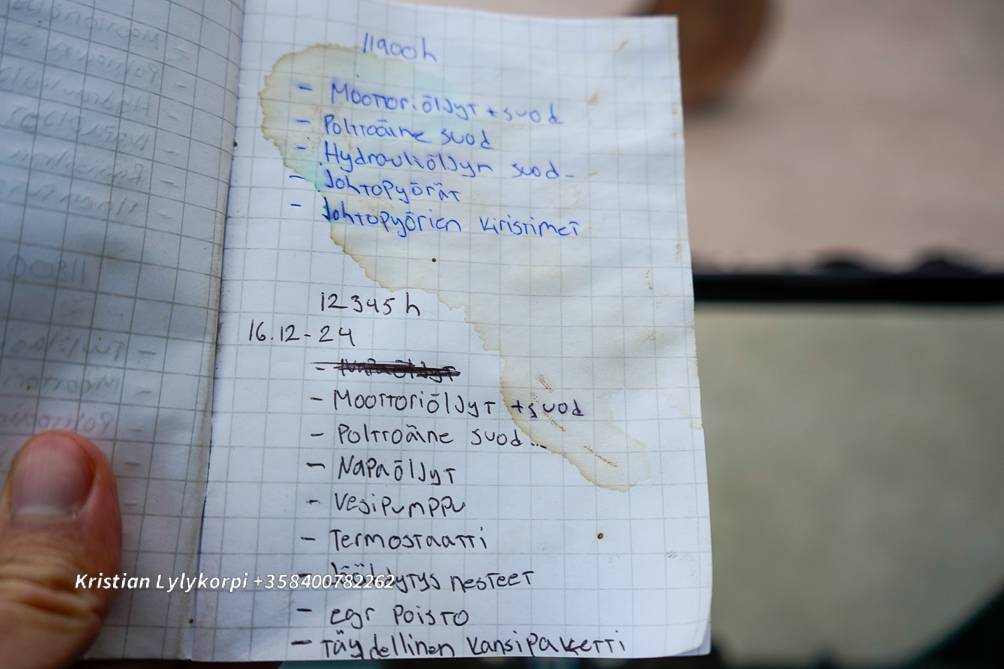 11900h
- Moottoriöljyt + suod
- Polttoaine suod
- Hydrauliöljyn suod-
- Johtopyörät
- Johtopyörien kiristimet
12345 h
16.12-24
- Moottoriöljyt + suod
- Polttoaine suod...
- Napaöljyt
- Vesipumppu
- Termostaatti
- Jäähdytys nesteet
Kristian Lylykorpi +358400782262
- egr Poisto
- Täydellinen kansipaketti